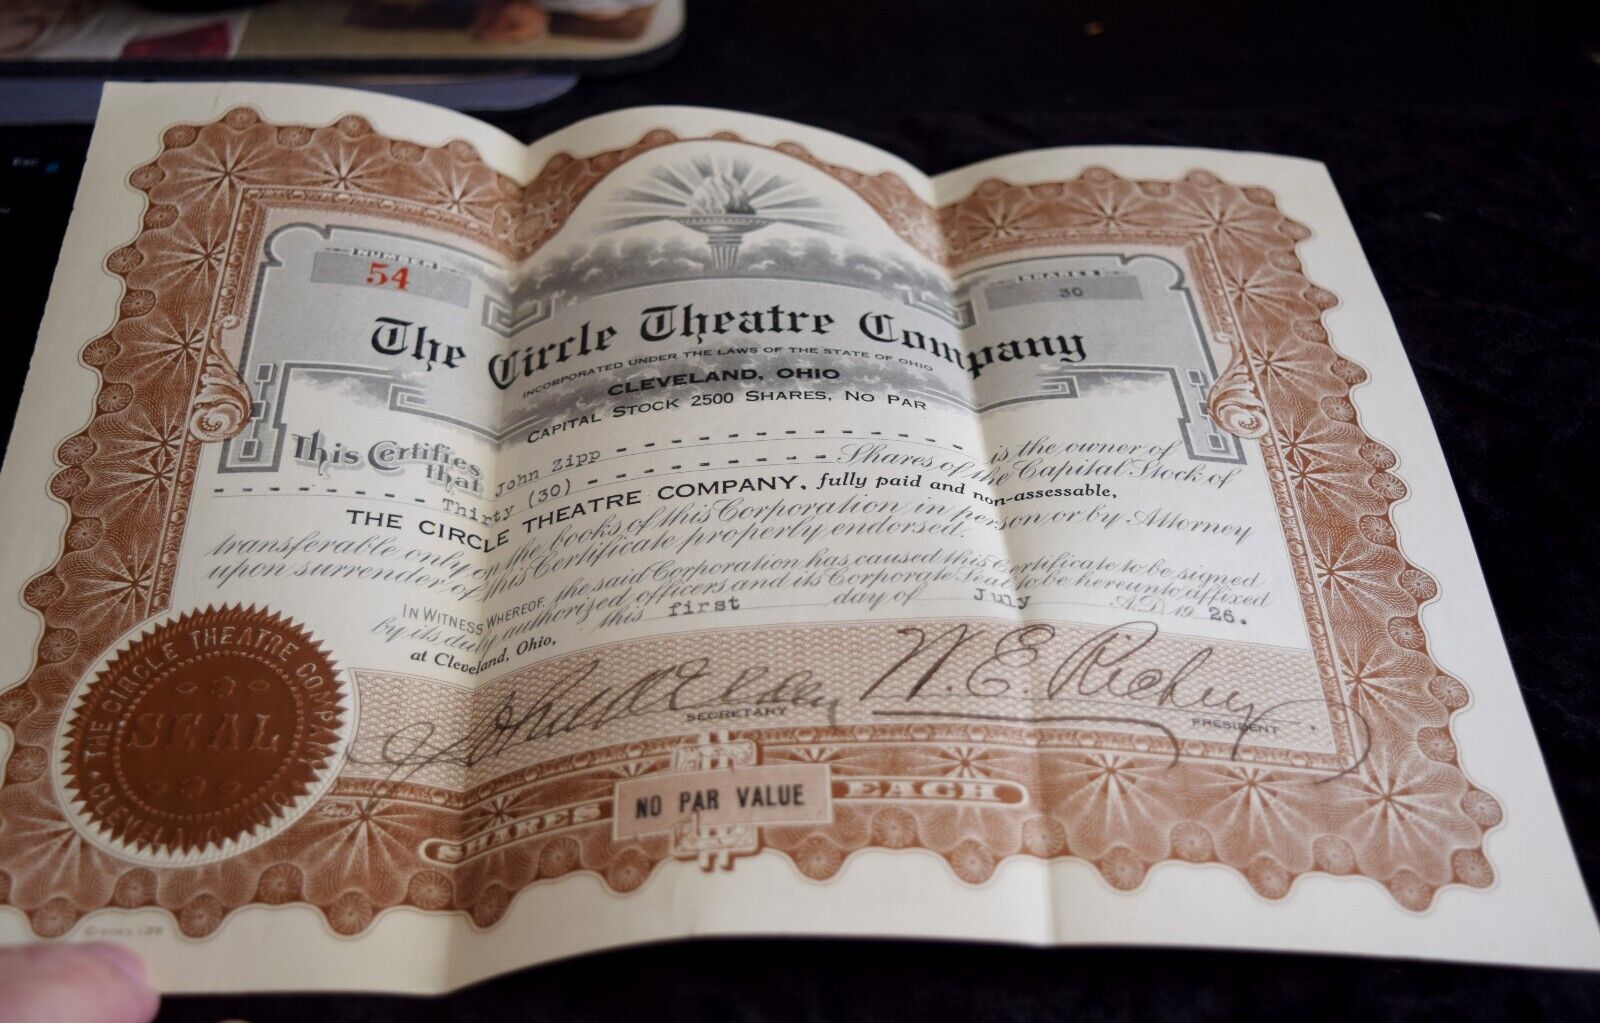 NUMBER
54
SHARES
30
The Circle Theatre Company
INCORPORATED UNDER THE LAWS OF THE STATE OF OHIO
CLEVELAND, OHIO
CAPITAL STOCK 2500 SHARES, NO PAR
This Certifies that John Zipp - - - - - - - - - - - - - - is the owner of
- - - - - - - - Thirty (30) - - - - - - - - - - Shares of the Capital Stock of
THE CIRCLE THEATRE COMPANY, fully paid and non-assessable,
transferable only on the books of this Corporation in person or by Attorney
upon surrender of this Certificate properly endorsed.
IN WITNESS WHEREOF, the said Corporation has caused this Certificate to be signed
by its duly authorized officers and its Corporate Seal to be hereunto affixed
at Cleveland, Ohio, this first day of July A.D. 19 26.
W. E. Richey
SECRETARY
PRESIDENT
THE CIRCLE THEATRE COMPANY
SEAL
CLEVELAND OHIO
SHARES NO PAR VALUE EACH
Esc